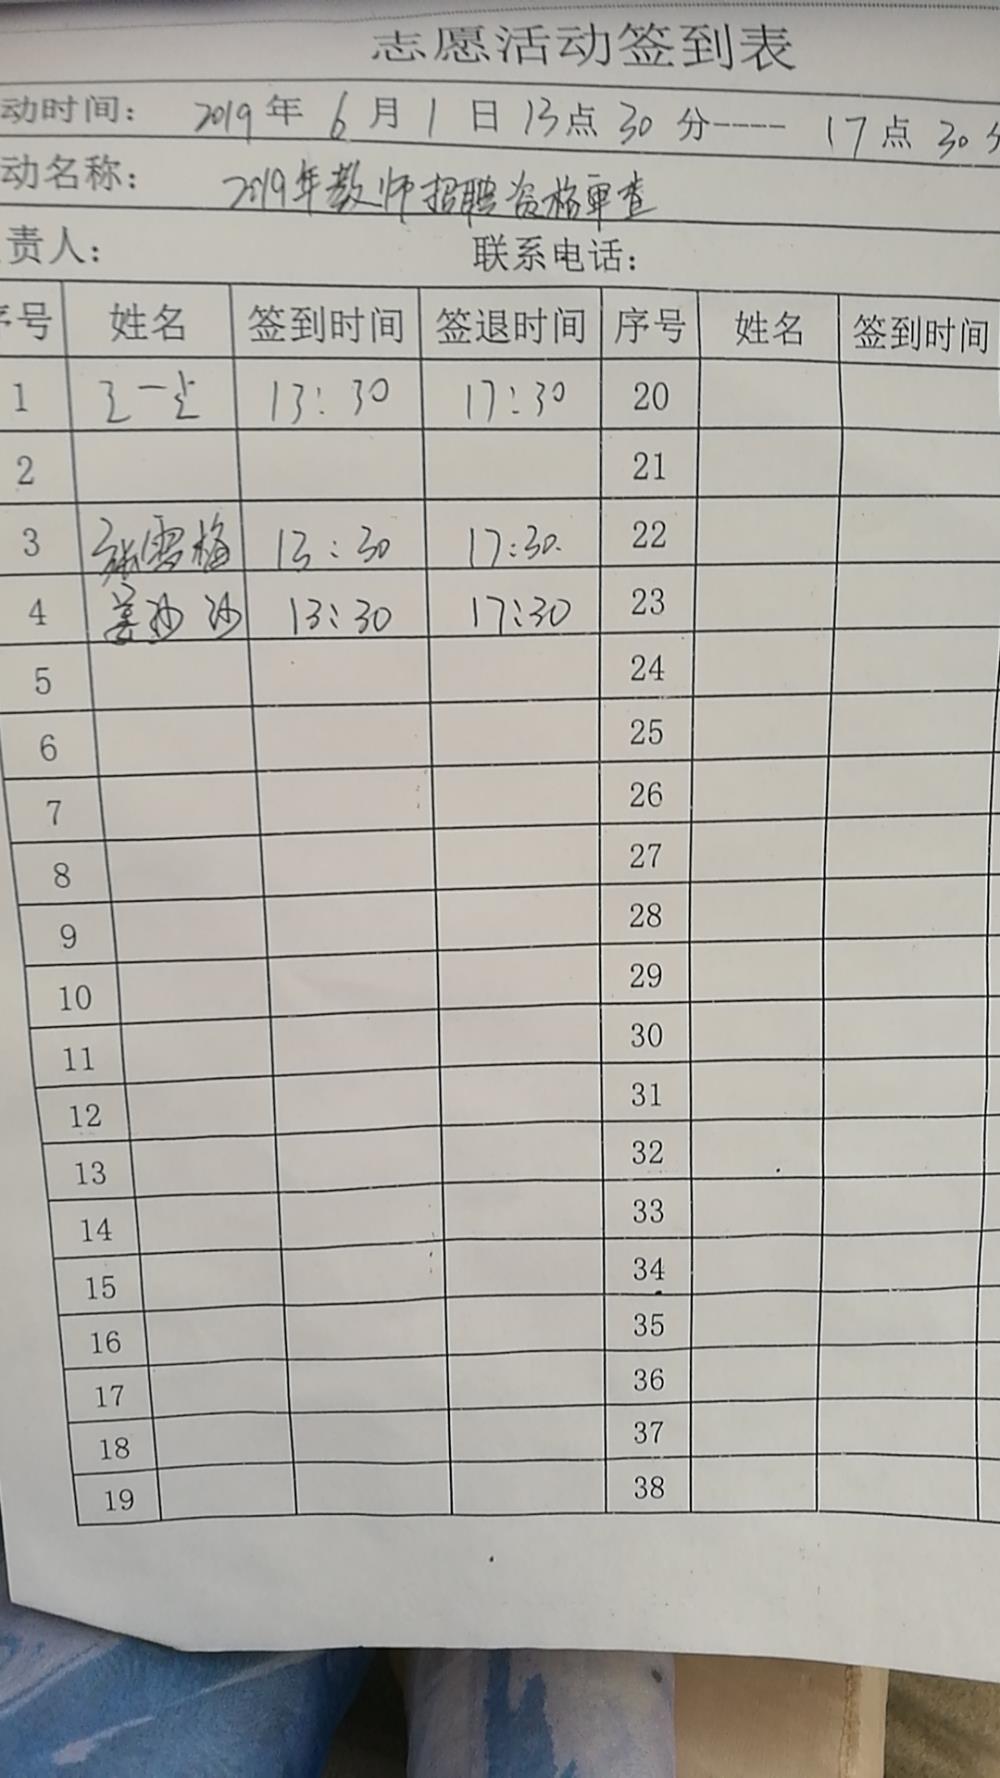 志愿活动签到表
动时间： 2019年6月1日13点30分----17点30分
动名称： 2019年教师招聘资格审查
责人： 联系电话：
序号 姓名 签到时间 签退时间 序号 姓名 签到时间
1 王一 13:30 17:30 20
2 21
3 张雪梅 13:30 17:30. 22
4 姜沙沙 13:30 17:30 23
5 24
6 25
7 26
8 27
9 28
10 29
11 30
12 31
13 32
14 33
15 34
16 35
17 36
18 37
19 38